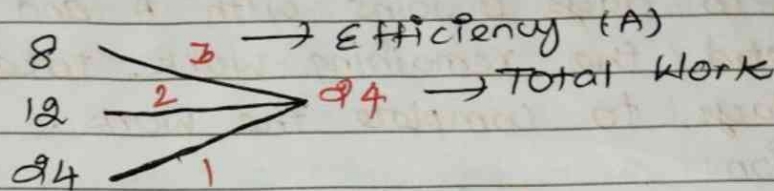 8 3 → Efficiency (A)
12 2 24 → Total Work
24 1